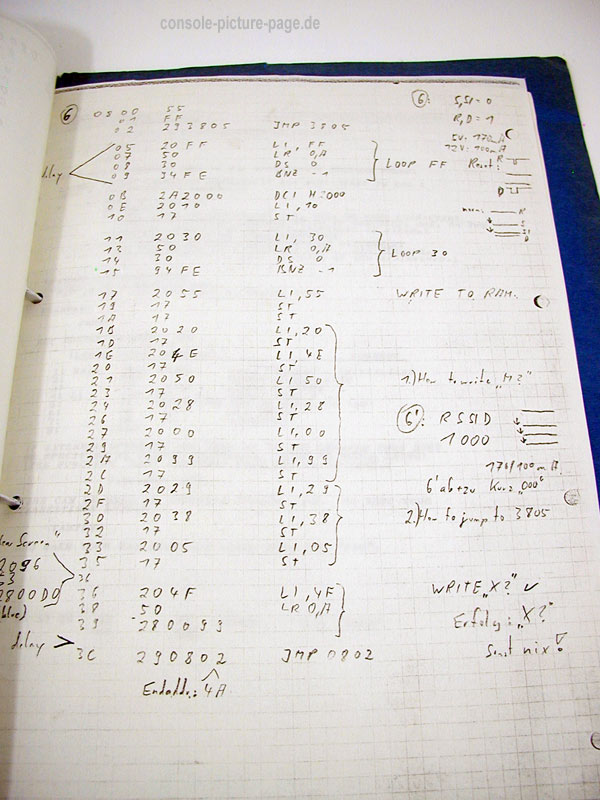 console-picture-page.de
6
08 00 55
01 FF
02 293805 JMP 3805
delay
05 20 FF LI, FF
07 50 LR 0,A
08 30 DS 0
09 94FE BNZ -1
LOOP FF
0B 2A2000 DCI H2000
0E 2010 LI, 10
10 17 ST
11 2030 LI, 30
13 50 LR 0,A
14 30 DS 0
15 94FE BNZ -1
LOOP 30
17 2055 LI, 55
19 17 ST
1A 17 ST
1B 2020 LI, 20
1D 17 ST
1E 204E LI, 4E
20 17 ST
21 2050 LI 50
23 17 ST
24 2028 LI, 28
26 17 ST
27 2000 LI, 00
29 17 ST
2A 2099 LI, 99
2C 17 ST
2D 2029 LI, 29
2F 17 ST
30 2038 LI, 38
32 17 ST
33 2005 LI, 05
35 17 ST
36
36 204F LI, 4F
38 50 LR 0,A
39 280099
delay >
3C 290802 JMP 0802
Endaddr.: 4A
Screen"
2096
53
2800D0
blue)
6: S,SI = 0
R,D = 1
5V: 170mA
12V: 100mA
Reset:
R
D
R
S
SI
D
WRITE TO RAM.
1.) How to write "M?"
6': RSSID
1000
170/100mA.
6' ab + zu Kurz "000"
2.) How to jump to 3805
WRITE "X?" ✓
Erfolg: "X?"
Sonst nix!